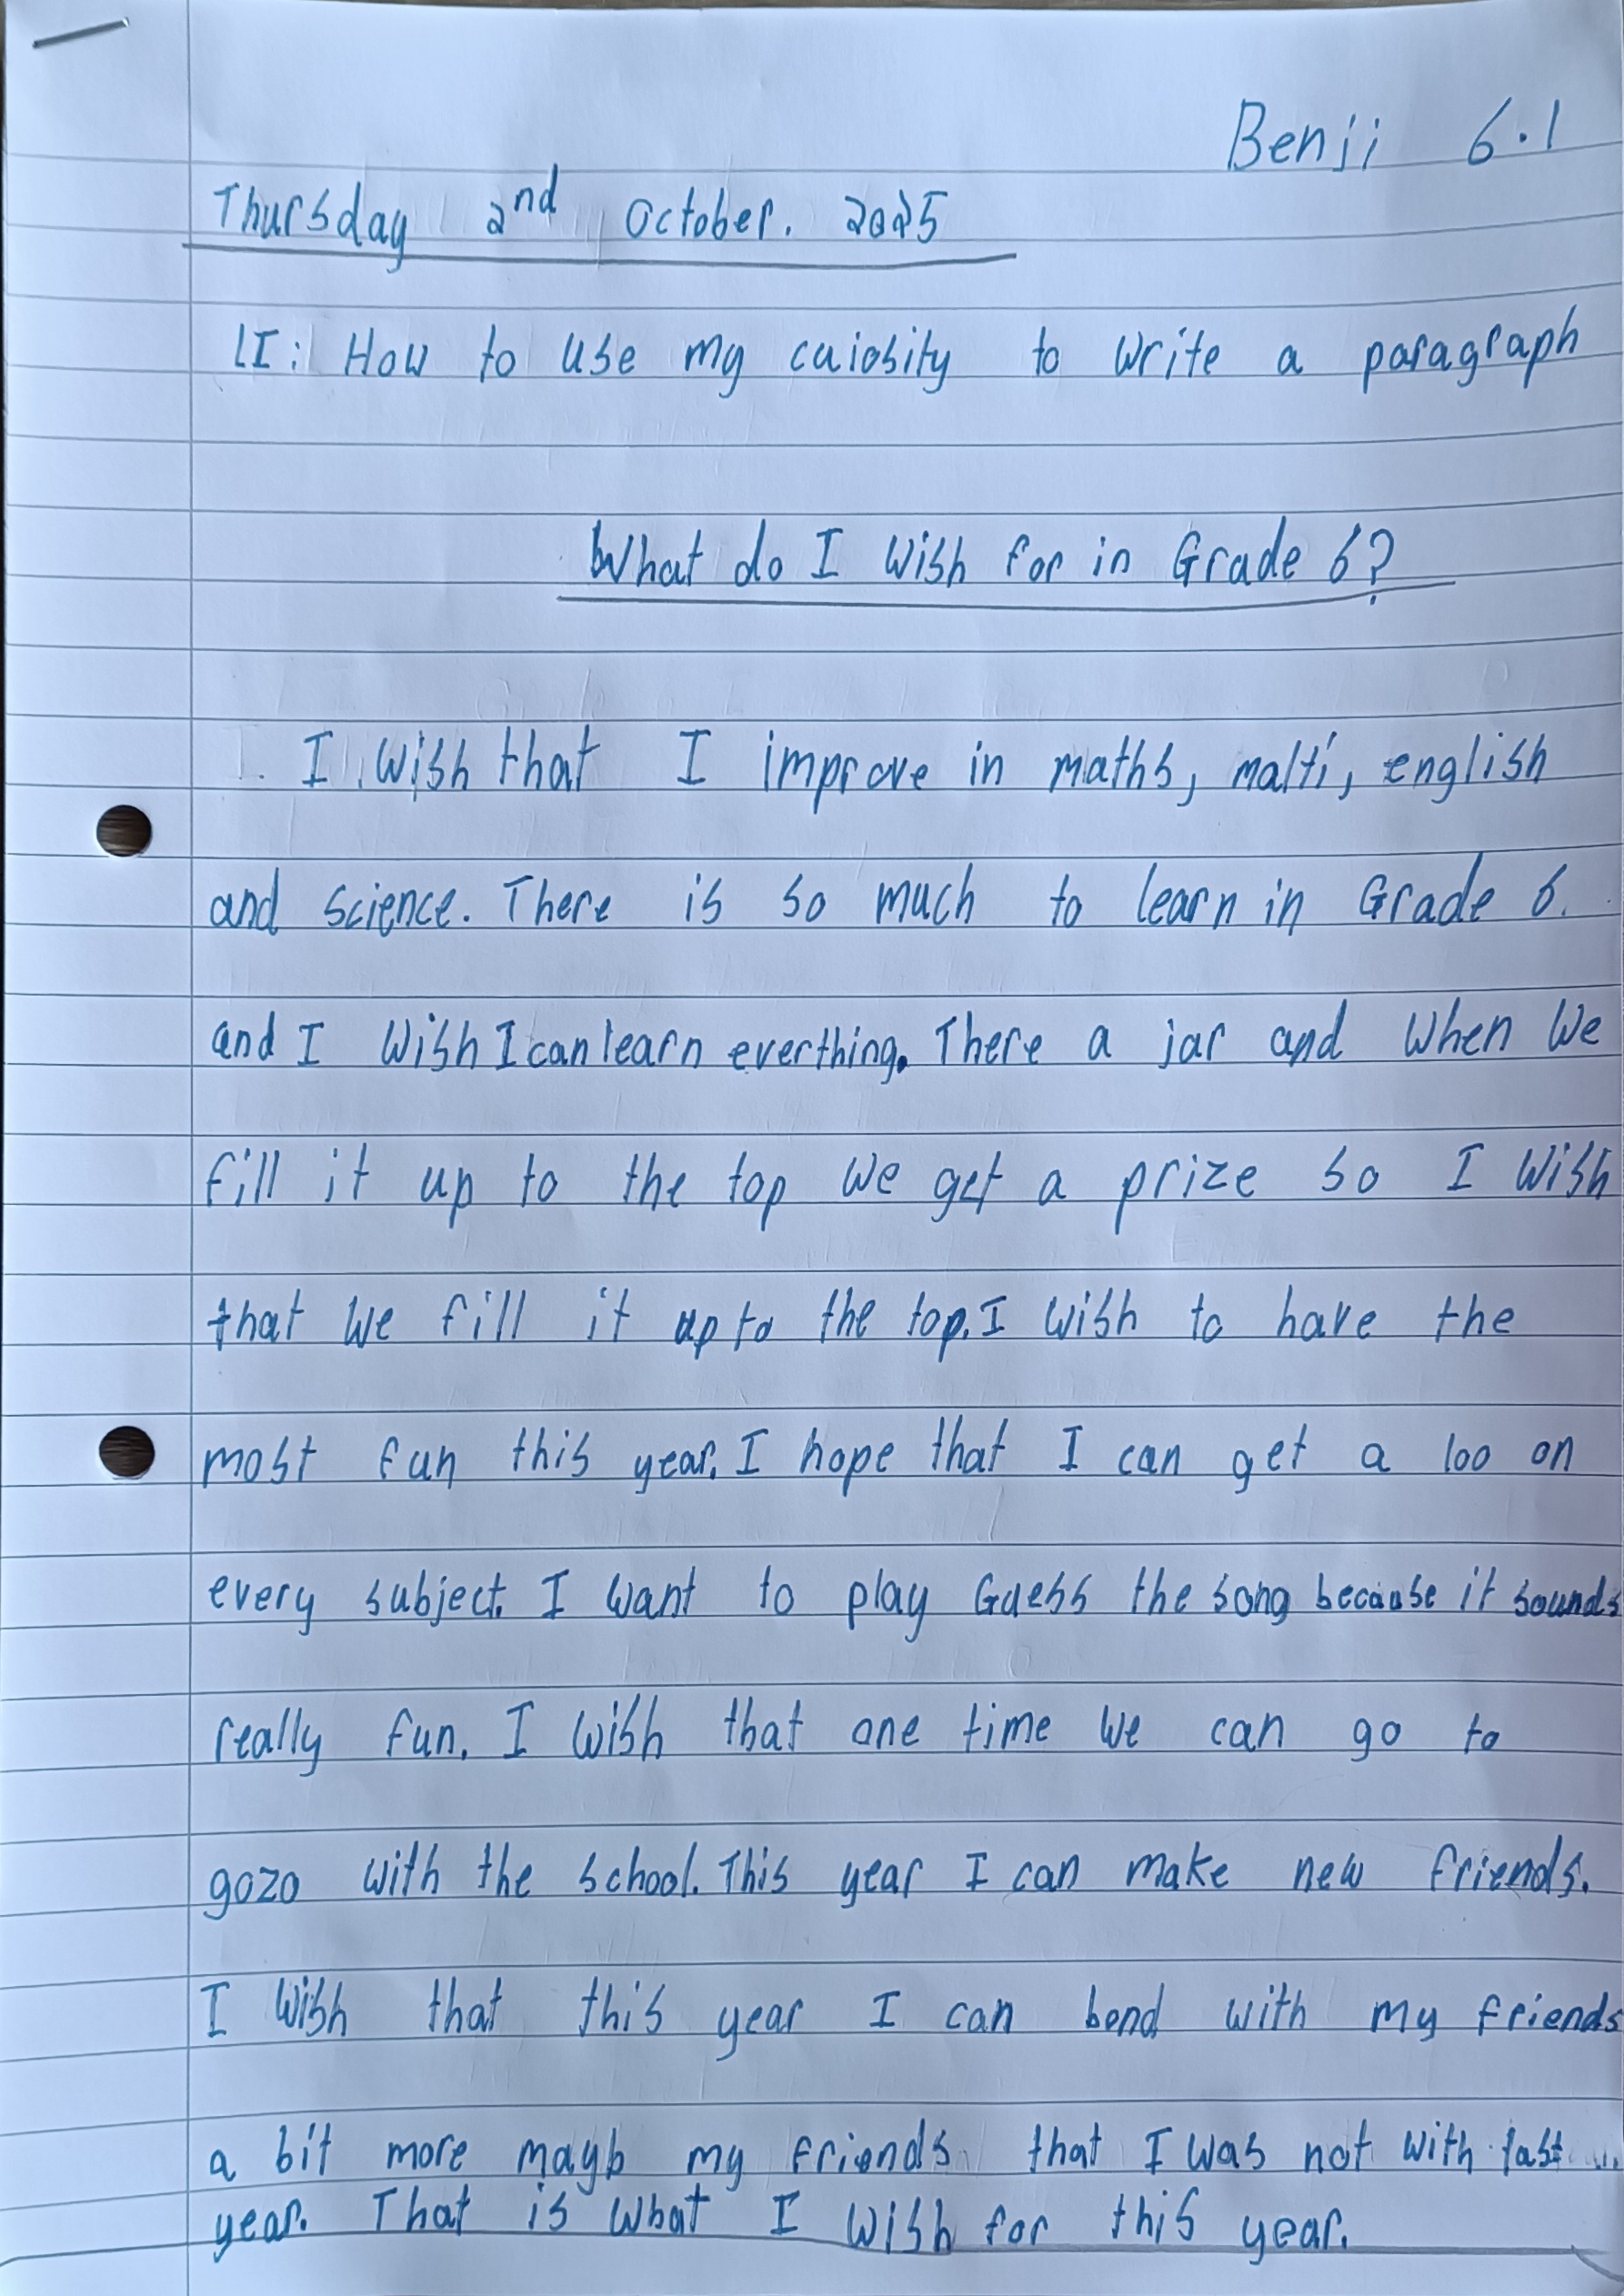 Benji 6.1
Thursday 2nd October. 2025
LI: How to use my cuiosity to write a paragraph
What do I wish for in Grade 6?
I wish that I improve in maths, malti, english
and science. There is so much to learn in Grade 6.
and I wish I can learn everthing. There a jar and when we
fill it up to the top we get a prize so I wish
that we fill it up to the top. I wish to have the
most fun this year. I hope that I can get a 100 on
every subject. I want to play Guess the song because it sounds
really fun. I wish that one time we can go to
gozo with the school. This year I can make new friends.
I wish that this year I can bond with my friends
a bit more mayb my friends that I was not with last
year. That is what I wish for this year.